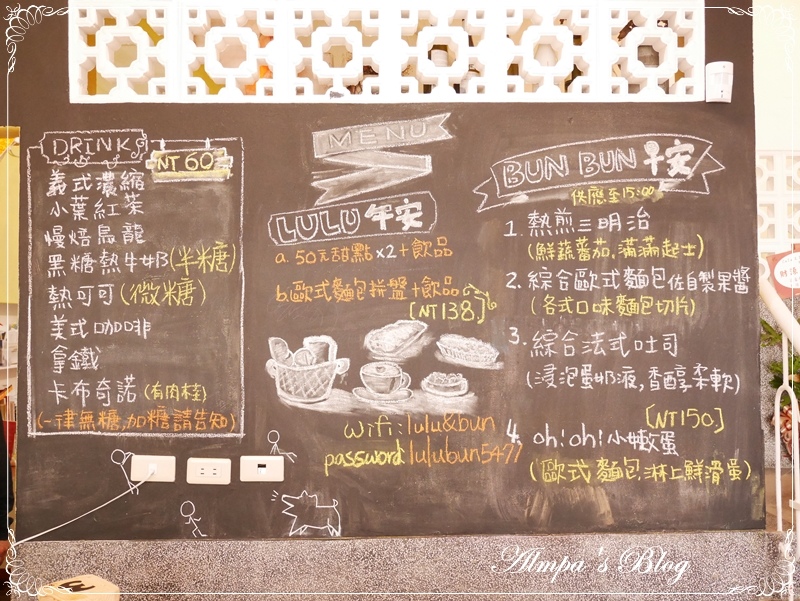 DRINK
NT 60
義式濃縮
小葉紅茶
慢焙烏龍
黑糖熱牛奶(半糖)
熱可可(微糖)
美式咖啡
拿鐵
卡布奇諾(有肉桂)
(一律無糖,加糖請告知)
MENU
LULU午安
a. 50元甜點x2+飲品
b.歐式麵包拼盤+飲品
[NT138.]
wifi:lulu&bun
password:lulubun5477
BUN BUN早安
供應至15:00
1.熱煎三明治
(鮮蔬蕃茄.滿滿起士)
2.綜合歐式麵包佐自製果醬
(各式口味麵包切片)
3.綜合法式吐司
(浸泡蛋奶液,香醇柔軟)
[NT150]
4.oh!oh!小嫩蛋
(歐式麵包.淋上鮮滑蛋)
Almpa's Blog